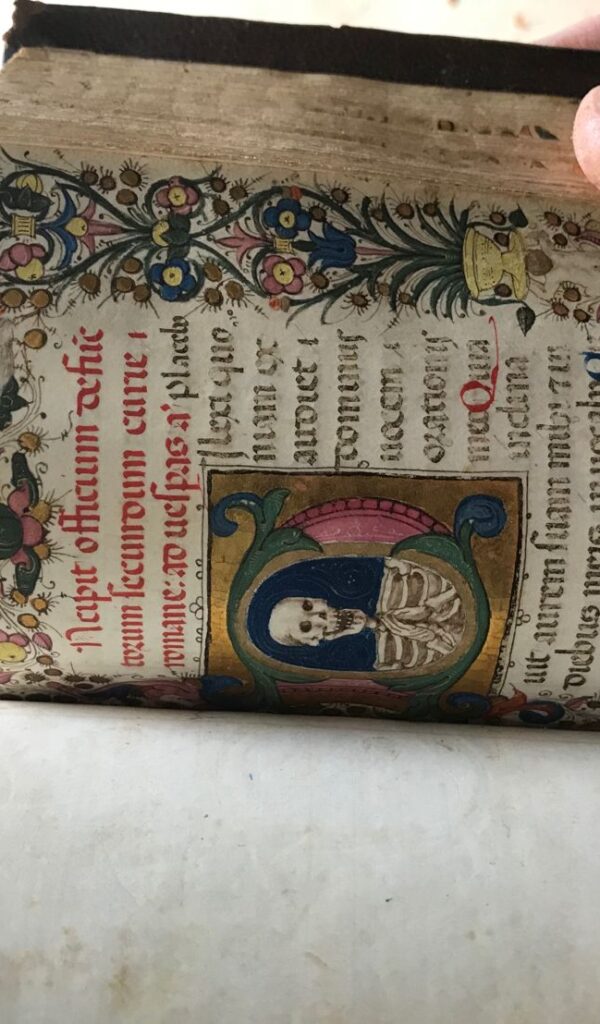 Incipit officium defūc
torum secundum curie
romane. ad uesperas. a. Placebo
Dilexi quo
niam ex
audiet
dominus
uocem
orõnis
mee Quia
inclina
uit aurem suam
diebus meis in